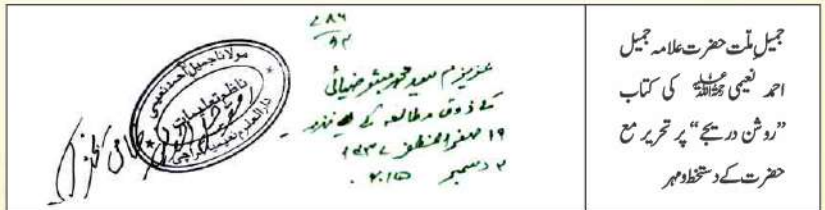 جمیلِ ملّت حضرت علامہ جمیل
احمد نعیمی رحمۃ اللہ علیہ کی کتاب
”روشن دریچے“ پر تحریر مع
حضرت کے دستخط و مہر
۷۸۶
۹۲
عزیزم سعید محمد مبشر ضیائی
کے ذوق مطالعہ کے لیے نذر
۱۹ صفر المظفر ۱۴۳۷
۲ دسمبر ۲۰۱۵
مولانا جمیل احمد نعیمی
ناظم تعلیمات
دارالعلوم نعیمیہ کراچی